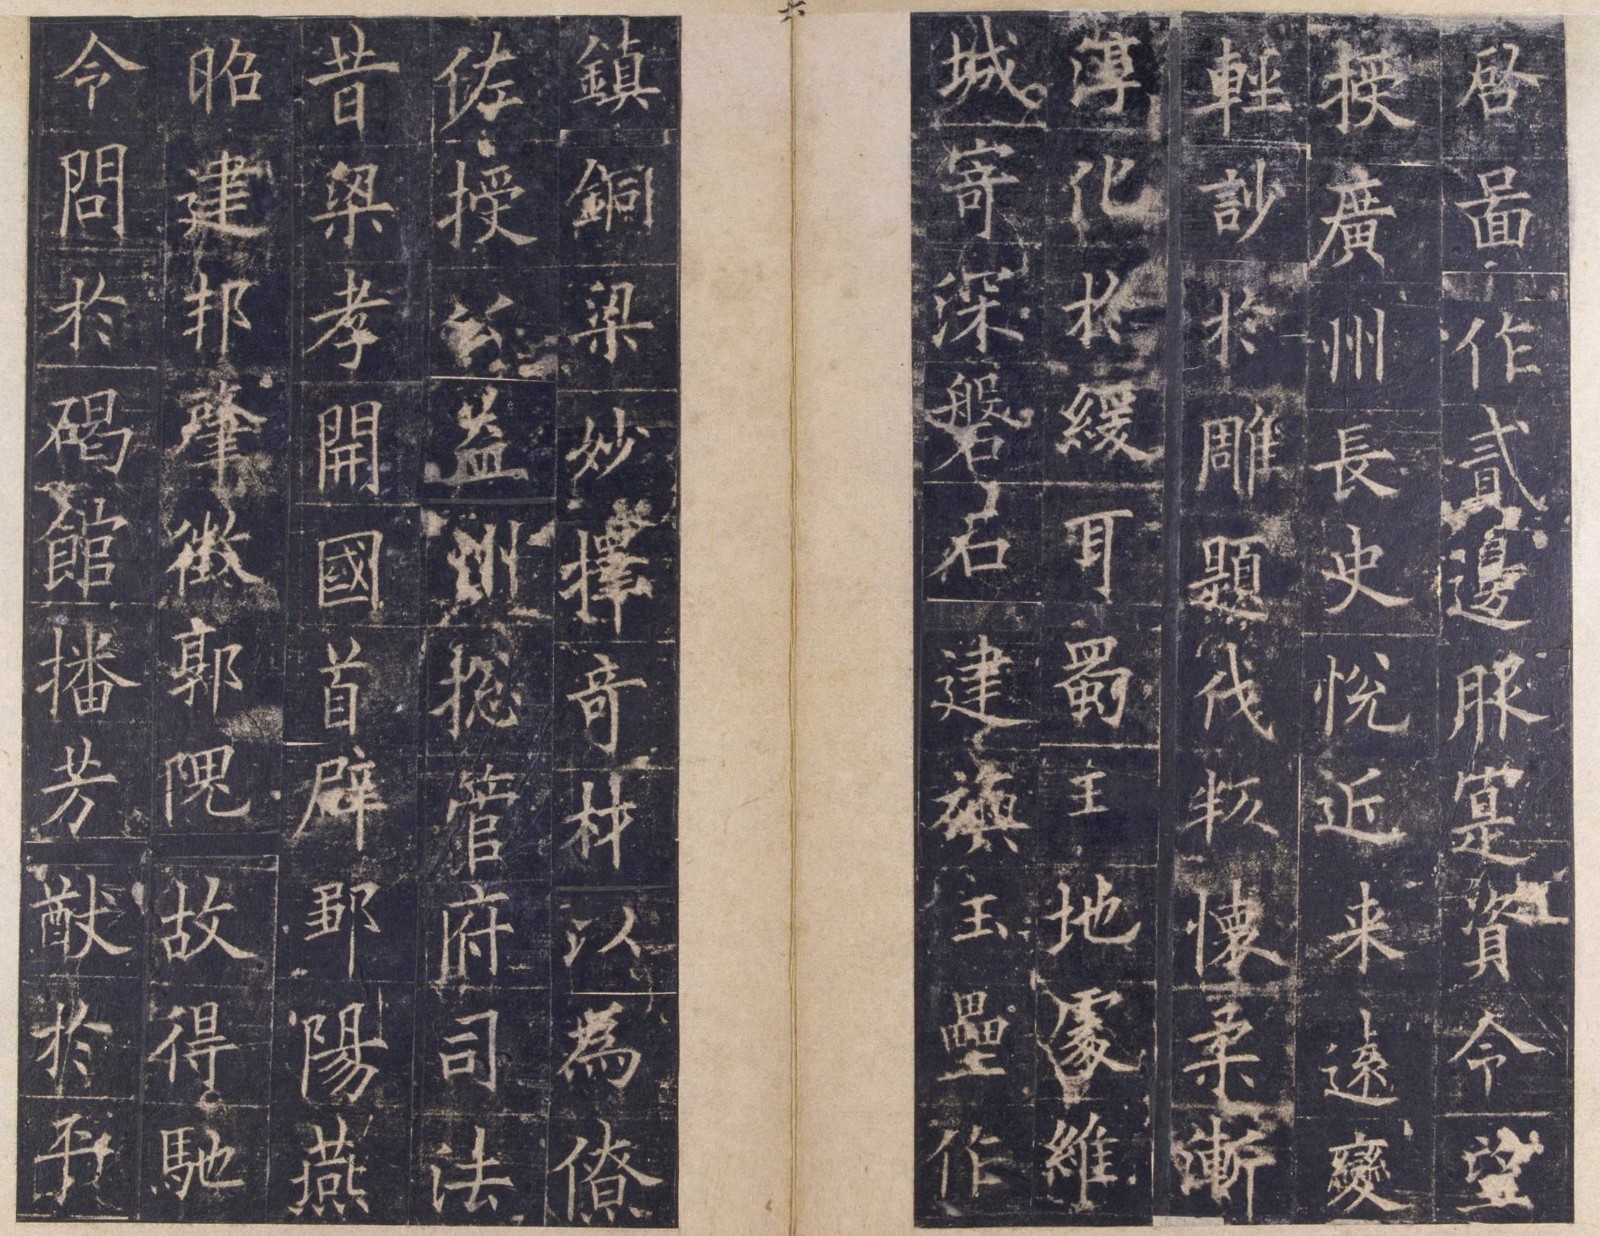 啓啚作貳邊服寔資令望
授廣州長史悅近来遠變
輕訬於雕題伐叛懷柔漸
淳化於緩耳蜀主地處維
城寄深磐石建旟玉壘作
鎮銅梁妙擇奇材以為僚
佐授公益州摠管府司法
昔梁孝開國首辟鄒陽燕
昭建邦肇徵郭隗故得馳
令問於碣館播芳猷於平